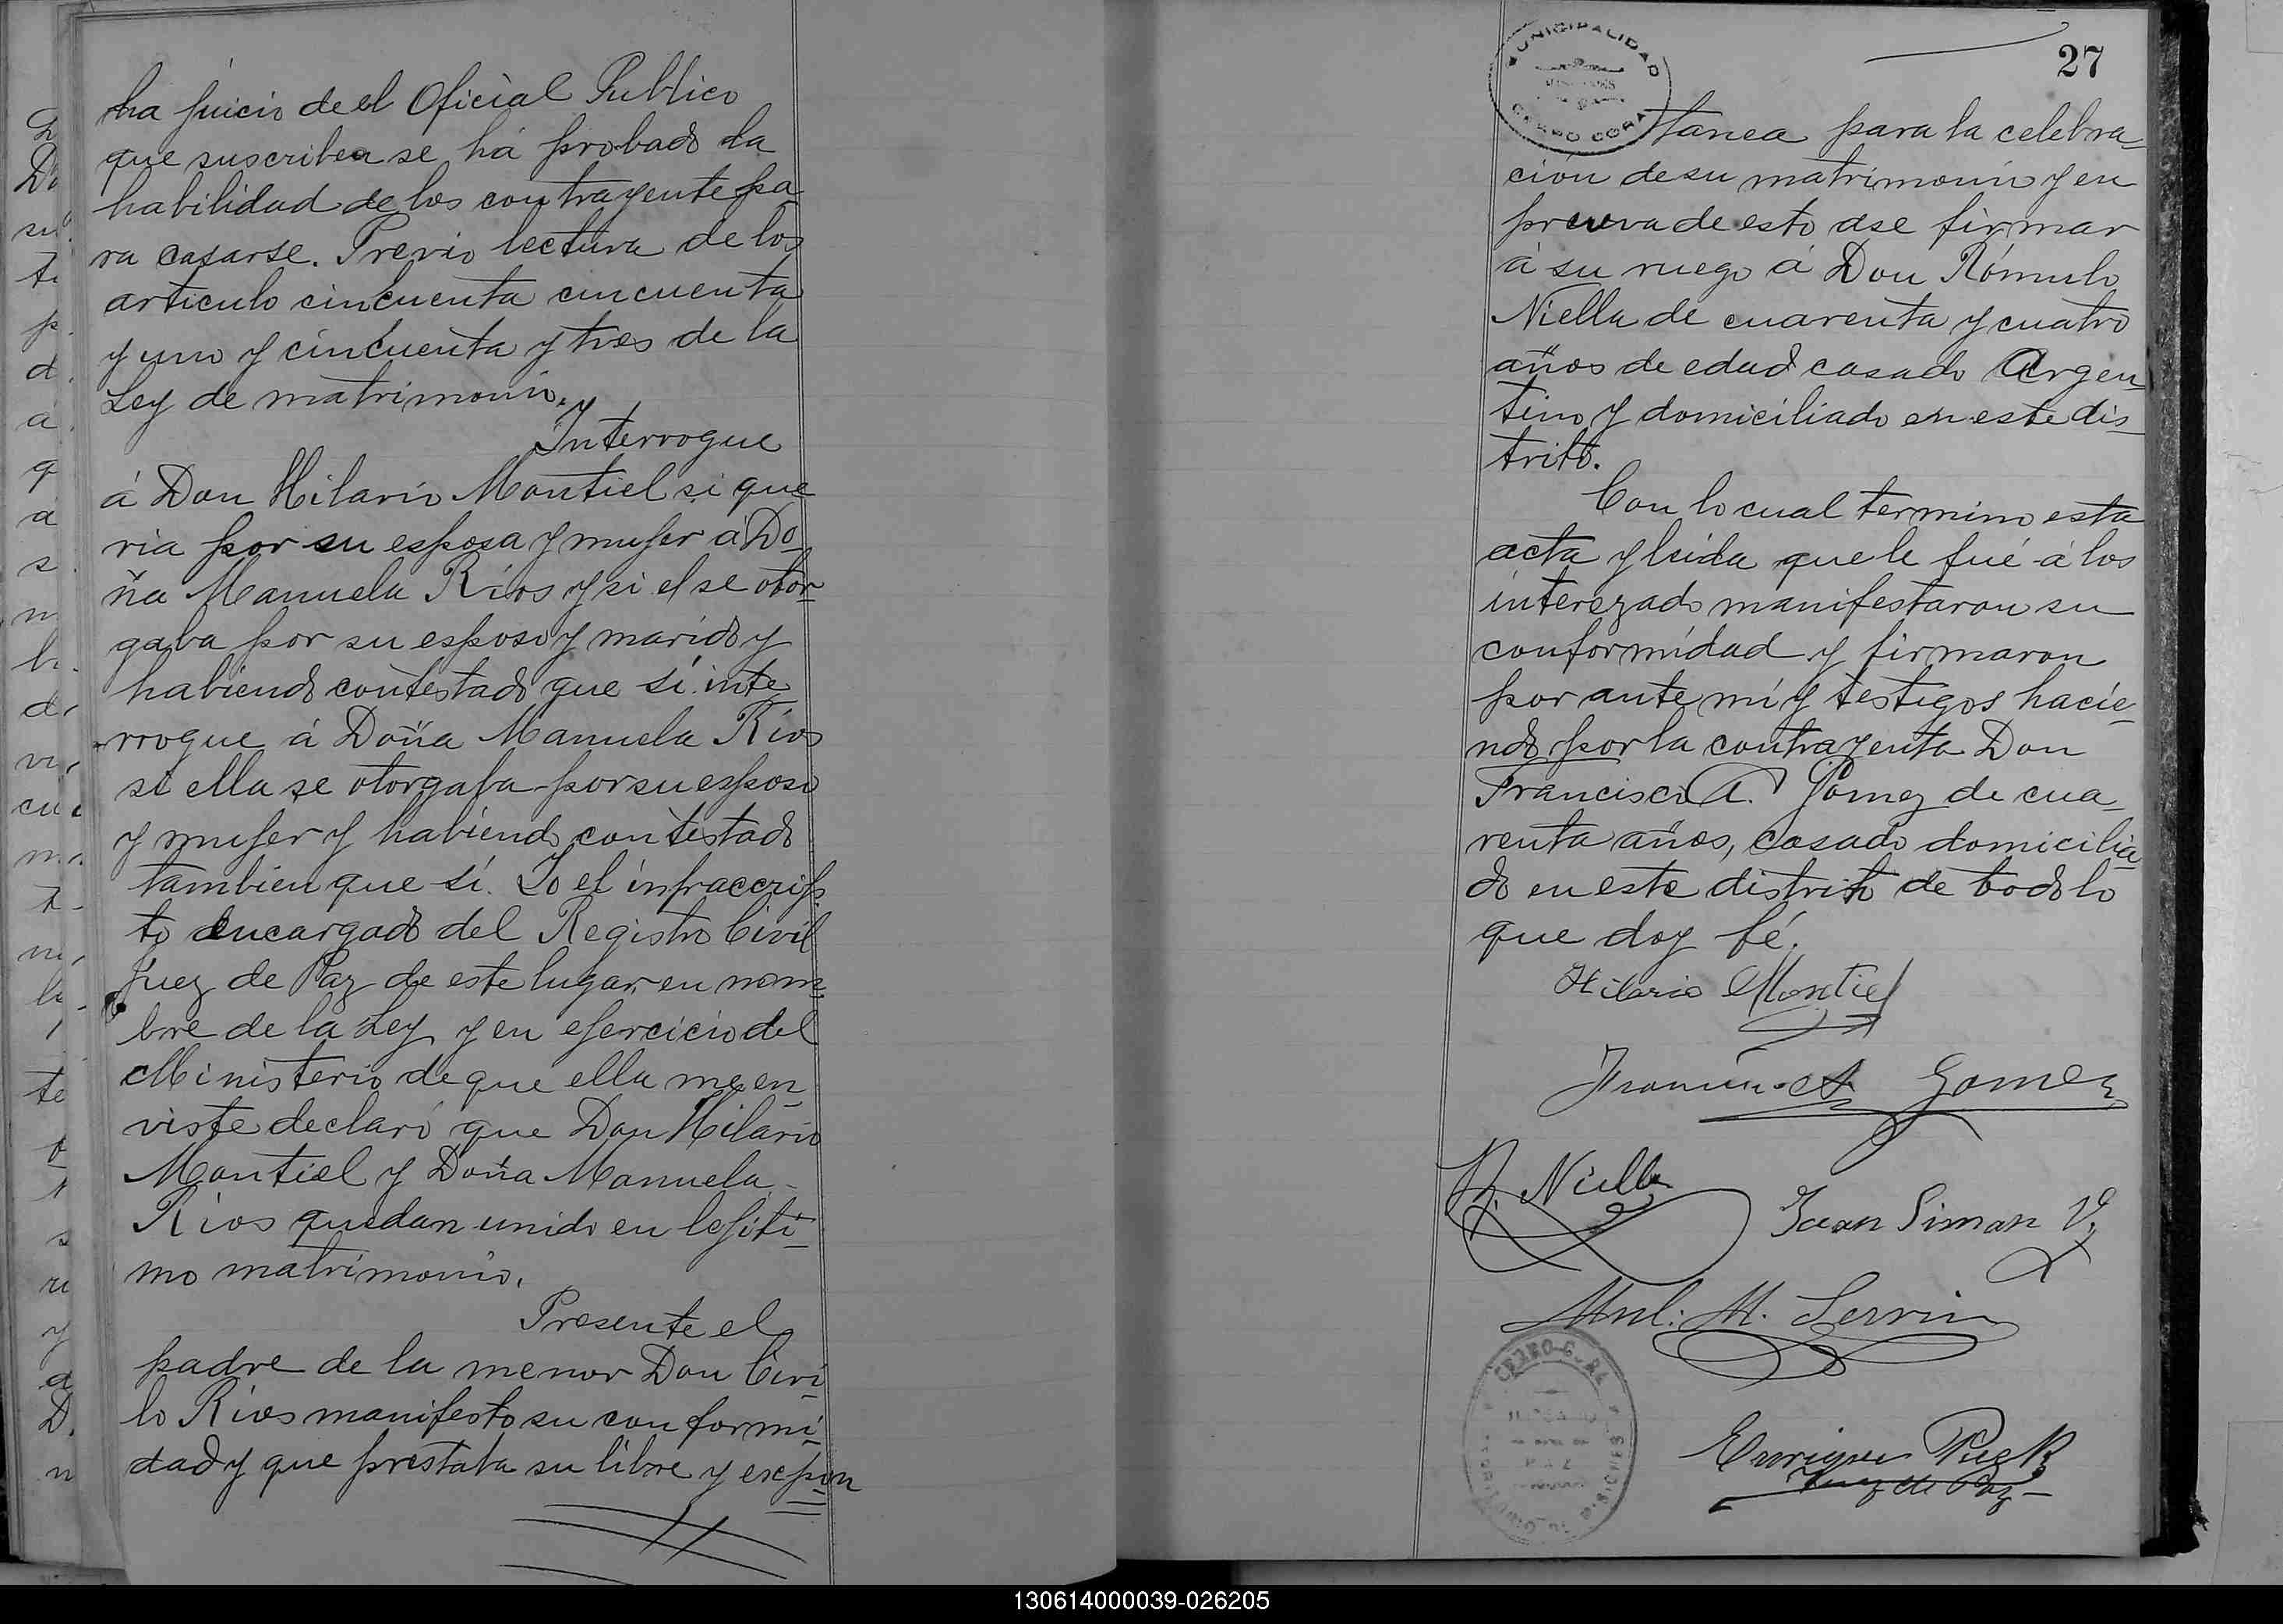 ha juicio de el Oficial Publico
que suscribe se há probado la
habilidad de los contrayente pa-
ra casarse. Previo lectura de los
articulo cincuenta cincuenta
y uno y cincuenta y tres de la
Ley de matrimonio.
Interrogue
á Don Hilario Montiel si que
ria por su esposa y mujer á Do-
ña Manuela Ríos y si el se otor-
gaba por su esposo y marido y
habiendo contestado que sí inte
rrogue á Doña Manuela Ríos
si ella se otorgaba por su esposo
y mujer y habiendo contestado
tambien que sí. Yo el infraccrip-
to encargado del Registro Civil
Juez de Paz de este lugar en nom-
bre de la Ley y en ejercicio del
Ministerio de que ella me en-
viste declaró que Don Hilario
Montiel y Doña Manuela
Ríos quedan unido en lejiti-
mo matrimonio.
Presente el
padre de la menor Don Ciri-
lo Ríos manifesto su conformi-
dad y que prestaba su libre y espon
27
MUNICIPALIDAD
CERRO CORA
tanea para la celebra-
ción de su matrimonio y en
prueva de esto ase firmar
á su ruego á Don Rómulo
Niella de cuarenta y cuatro
años de edad casado Argen-
tino y domiciliado en este dis-
trito.
Con lo cual termino esta
acta y leida que le fué á los
interezado manifestaron su
conformidad y firmaron
por ante mí y testigos hacie-
ndo por la contrayenta Don
Francisco A. Gomez de cua-
renta años, casado domicilia
do en este distrito de todo lo
que doy fé.
Hilario Montiel
Francisco A Gomez
R. Niella
Juan Siman V.
Mnl. M. Servin
CERRO CORA
MISIONES
Enrique
Juez de Paz
130614000039-026205